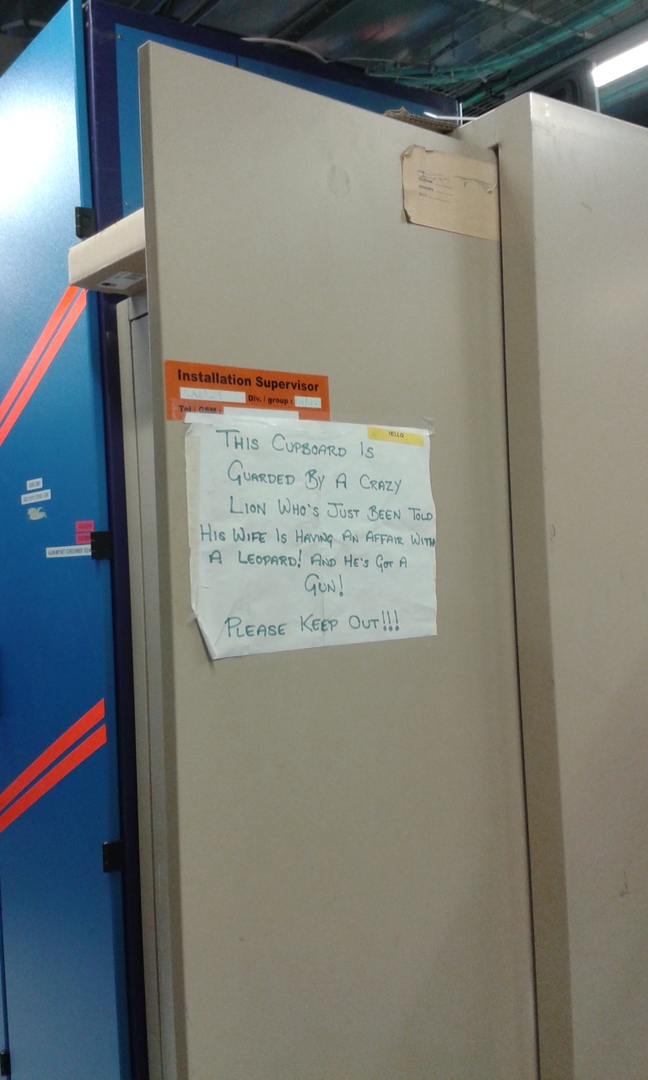 Installation Supervisor
Div. / group :
Tel / GSM :
HELLO
THIS CUPBOARD IS
GUARDED BY A CRAZY
LION WHO'S JUST BEEN TOLD
HIS WIFE IS HAVING AN AFFAIR WITH
A LEOPARD! AND HE'S GOT A
GUN!
PLEASE KEEP OUT!!!